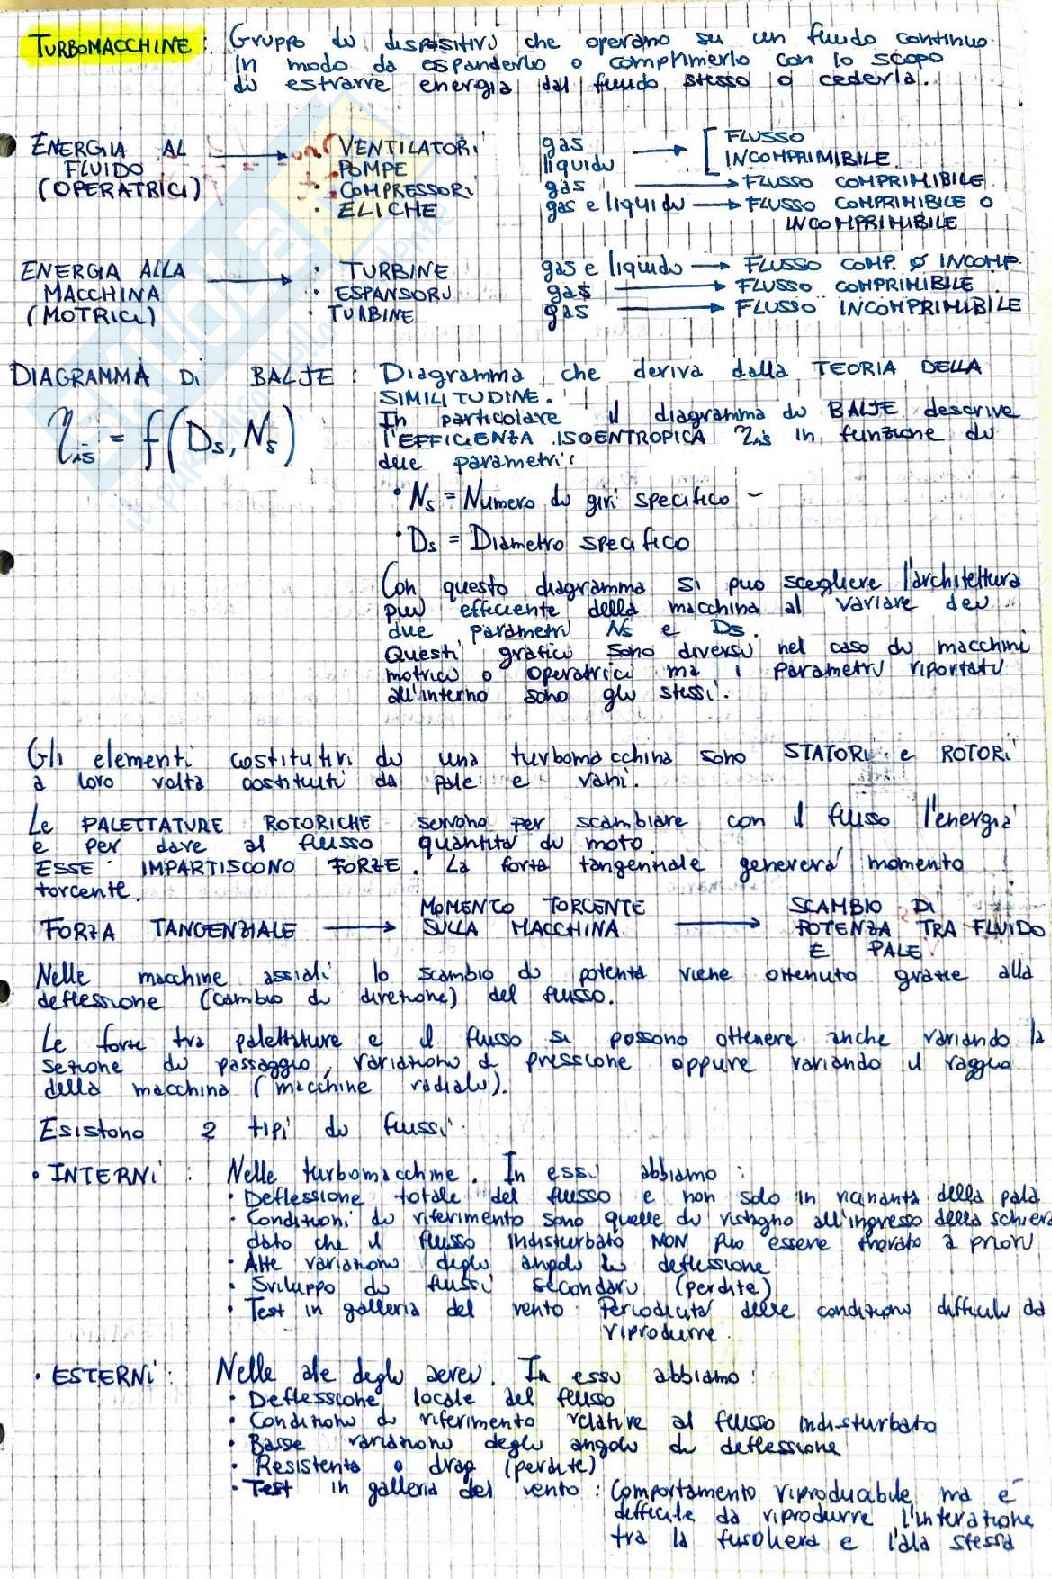 TURBOMACCHINE: Gruppo di dispositivi che operano su un fluido continuo
in modo da espanderlo o comprimerlo con lo scopo
di estrarre energia dal fluido stesso o cederla.
ENERGIA AL → VENTILATORI gas → [ FLUSSO
FLUIDO · POMPE liquidi INCOMPRIMIBILE
(OPERATRICI) · COMPRESSORI gas → FLUSSO COMPRIMIBILE
· ELICHE gas e liquidi → FLUSSO COMPRIMIBILE O
INCOMPRIMIBILE
ENERGIA ALLA → · TURBINE gas e liquido → FLUSSO COMP. O INCOMP.
MACCHINA · ESPANSORI gas → FLUSSO COMPRIMIBILE
(MOTRICI) · TURBINE gas → FLUSSO INCOMPRIMIBILE
DIAGRAMMA Di BALJE: Diagramma che deriva dalla TEORIA DELLA
SIMILITUDINE.
ηis = f(Ds, Ns) In particolare il diagramma di BALJE descrive
l'EFFICIENZA ISOENTROPICA ηis in funzione di
due parametri:
· Ns = Numero di giri specifico –
· Ds = Diametro specifico
Con questo diagramma si può scegliere l'architettura
più efficiente della macchina al variare dei
due parametri Ns e Ds.
Questi grafici sono diversi nel caso di macchini
motrici o operatrici ma i parametri riportati
all'interno sono gli stessi.
Gli elementi costitutivi di una turbomacchina sono STATORi e ROTORi
a loro volta costituiti da pale e vani.
Le PALETTATURE ROTORICHE servono per scambiare con il flusso l'energia
e per dare al flusso quantità di moto.
ESSE IMPARTISCONO FORZE. La forza tangenziale genererà momento
torcente.
FORZA TANGENZIALE → MOMENTO TORCENTE SULLA MACCHINA → SCAMBIO DI
POTENZA TRA FLUIDO
E PALE.
Nelle macchine assiali lo scambio di potenza viene ottenuto grazie alla
deflessione (cambio di direzione) del flusso.
Le forze tra palettature e il flusso si possono ottenere anche variando la
sezione di passaggio, variazioni di pressione oppure variando il raggio
della macchina (macchine radiali).
Esistono 2 tipi di flussi:
· INTERNi: Nelle turbomacchine. In essi abbiamo:
· Deflessione totale del flusso e non solo in vicinanza della pala
· Condizioni di riferimento sono quelle di ristagno all'ingresso della schiera
dato che il flusso indisturbato NON può essere trovato a priori
· Alte variazioni degli angoli di deflessione
· Sviluppo di flussi secondari (perdite)
· Test in galleria del vento: Periodicità delle condizioni difficili da
riprodurre.
· ESTERNi: Nelle ale degli aerei. In essi abbiamo:
· Deflessione locale del flusso
· Condizioni di riferimento relative al flusso indisturbato
· Basse variazioni degli angoli di deflessione
· Resistenza o drag (perdite)
· Test in galleria del vento: Comportamento riproducabile ma è
difficile da riprodurre l'interazione
tra la fusoliera e l'ala stessa